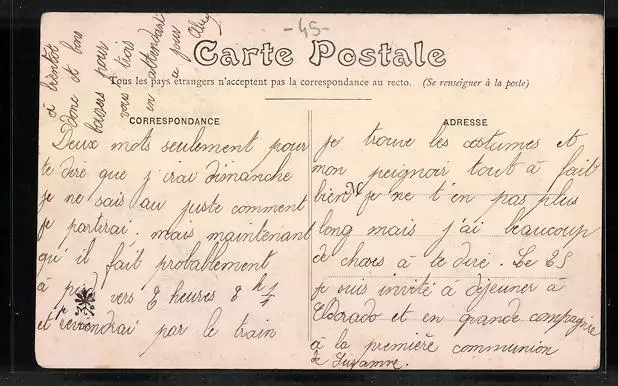 -45-
Carte Postale
Tous les pays étrangers n'acceptent pas la correspondance au recto. (Se renseigner à la poste)
CORRESPONDANCE
Deux mots seulement pour
te dire que j'irai dimanche
je ne sais au juste comment
je partirai. mais maintenant
qu'il fait probablement
à pied vers 8 heures 8 h ½
et je reviendrai par le train
ADRESSE
je trouve les costumes et
mon peignoir tout à fait
bien M je ne t'en pas plus
long mais j'ai beaucoup
de choses à te dire. Le 25
je suis invité à déjeuner à
Eldorado et en grande compagnie
à la première communion
de Suzanne.
à bientôt
donc et bons
baisers pour
vous trois
en attendant
ce jour